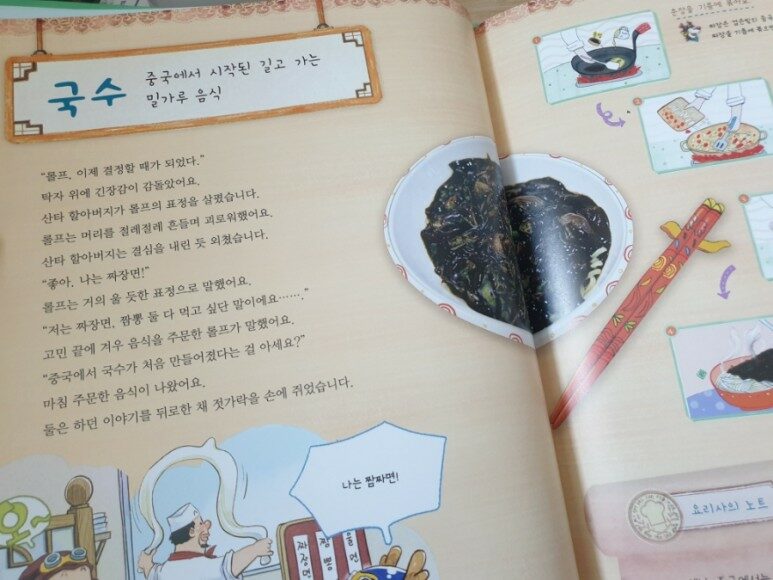 국수
중국에서 시작된 길고 가는
밀가루 음식
"롤프, 이제 결정할 때가 되었다."
탁자 위에 긴장감이 감돌았어요.
산타 할아버지가 롤프의 표정을 살폈습니다.
롤프는 머리를 절레절레 흔들며 괴로워했어요.
산타 할아버지는 결심을 내린 듯 외쳤습니다.
"좋아. 나는 짜장면!"
롤프는 거의 울 듯한 표정으로 말했어요.
"저는 짜장면, 짬뽕 둘 다 먹고 싶단 말이에요……."
고민 끝에 겨우 음식을 주문한 롤프가 말했어요.
"중국에서 국수가 처음 만들어졌다는 걸 아세요?"
마침 주문한 음식이 나왔어요.
둘은 하던 이야기를 뒤로한 채 젓가락을 손에 쥐었습니다.
나는 짬짜면!
짜장면
짬뽕
1
2
3
4
요리사의 노트